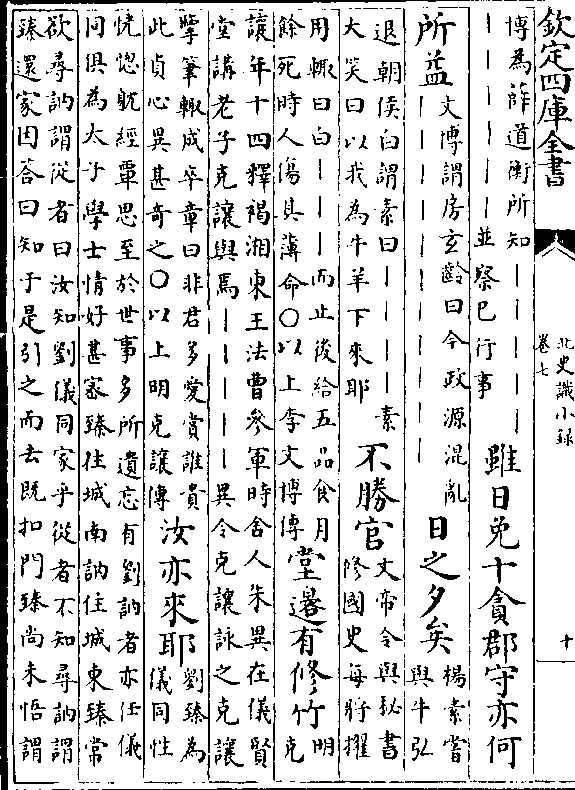 欽定四庫全書
北史識小録
卷七
十
博為薛道衡所知——————
——————並察已行事
雖日免十貪郡守亦何
所益
文博謂房玄齡曰今政源混亂
——————————
日之夕矣
楊素嘗
與牛弘
退朝侯白謂素曰————素
大笑曰以我為牛羊下來耶
不勝官
文帝令與秘書
修國史每將擢
用輒曰白———而止後給五品食月
餘死時人傷其薄命〇以上李文博傳
堂邊有修竹
明
克
讓年十四釋褐湘東王法曹參軍時舍人朱異在儀賢
堂講老子克讓與焉—————異令克讓詠之克讓
擥筆輒成卒章曰非君多愛賞誰貴
此貞心異甚奇之〇以上明克讓傳
汝亦來耶
劉臻為
儀同性
恍惚躭經覃思至於世事多所遺忘有劉訥者亦任儀
同俱為太子學士情好甚密臻住城南訥住城東臻常
欲尋訥謂從者曰汝知劉儀同家乎從者不知尋訥謂
臻還家因荅曰知于是引之而去既扣門臻尚未悟謂